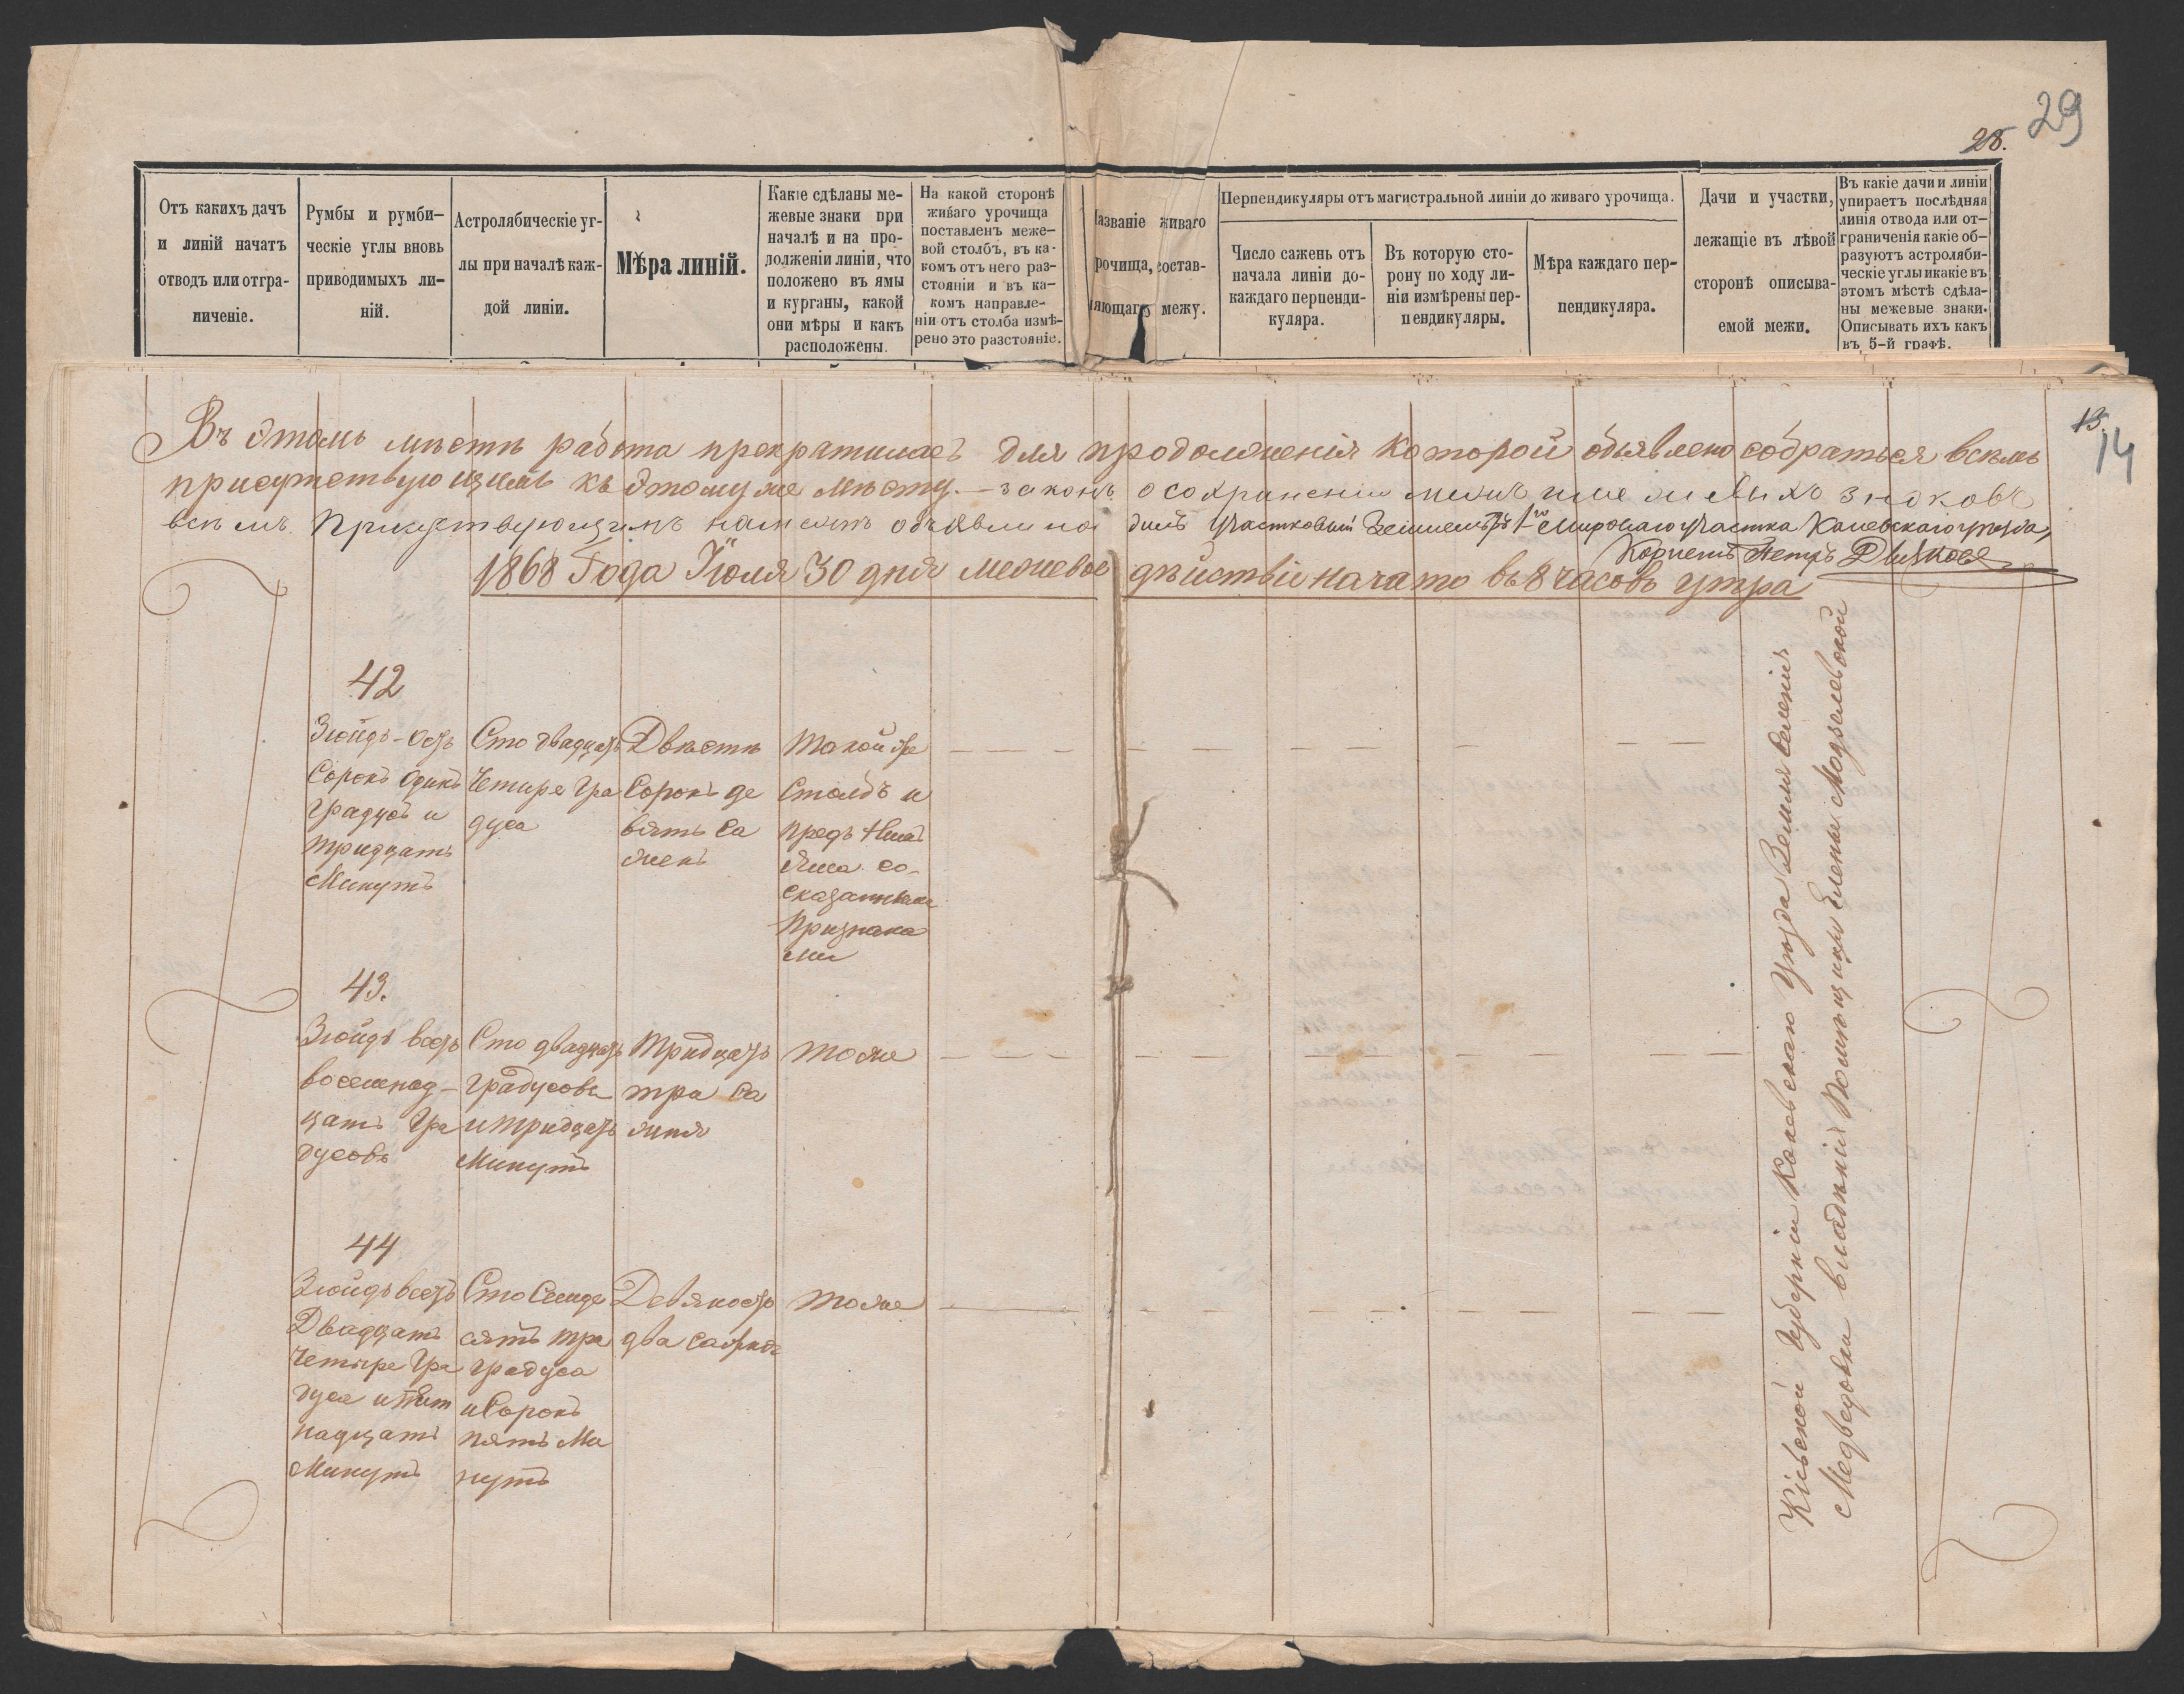 29
28.
Отъ какихъ дачъ
и линій начатъ
отводъ или отгра-
ниченіе.
Румбы и румби-
ческіе углы вновь
приводимыхъ ли-
ній.
Астролябическіе уг-
лы при началѣ каж-
дой линіи.
Мѣра линій.
Какіе сдѣланы ме-
жевые знаки при
началѣ и на про-
долженіи линіи, что
положено въ ямы
и курганы, какой
они мѣры и какъ
расположены.
На какой сторонѣ
живаго урочища
поставленъ меже-
вой столбъ, въ ка-
комъ отъ него раз-
стояніи и въ ка-
комъ направле-
ніи отъ столба измѣ-
рено это разстояніе.
Названіе живаго
рочища, состав-
ляющаго межу.
Перпендикуляры отъ магистральной линіи до живаго урочища.
Число сажень отъ
начала линіи до-
каждаго перпенди-
куляра.
Въ которую сто-
рону по ходу ли-
ніи измѣрены пер-
пендикуляры.
Мѣра каждаго пер-
пендикуляра.
Дачи и участки,
лежащіе въ лѣвой
сторонѣ описыва-
емой межи.
Въ какіе дачи и линіи
упираетъ послѣдняя
линія отвода или от-
граниченія какіе об-
разуютъ астроляби-
ческіе углы и какіе въ
этомъ мѣстѣ сдѣла-
ны межевые знаки.
Описывать ихъ какъ
въ 5-й графѣ.
13.
14
Въ этомъ мѣстѣ работа прекратилась для продолженія которой объявлено собраться всѣмъ
присутствующимъ къ этому же мѣсту. — законъ о сохраненіи знаковъ
всѣмъ присутствующимъ объявлена Участковый Землемѣръ 1го Мироваго участка Каневскаго уѣзда,
Корнетъ Петръ
1868 Года Іюля 30 дня межевое дѣйствіе начато въ 8 часовъ утра
42
Зюйдъ-остъ
Сорокъ одинъ
градусъ и
тридцать
Минутъ
Сто двадцать
Четыре гра
дуса
Двѣсти
Сорокъ де
вять са
женъ
такой же
Столбъ и
предъ нимъ
яма со
сказанными
Признака
ми
43.
Зюйдъ вестъ
восемнад-
цать гра
дусовъ
Сто двадцать
градусовъ
и тридцать
Минутъ
тридцать
три са
женя
тоже
44
Зюйдъ вестъ
Двадцать
Четыре гра
дуса и пят
надцать
Минутъ
Сто Семде
сятъ три
градуса
и Сорокъ
пять Ми
нутъ
Девяносто
два сажня
тоже
Кіевской Губерніи Каневскаго Уѣзда Земля Селенія
Медвѣдовки владѣнія Помѣщицы Елены Модзелевской